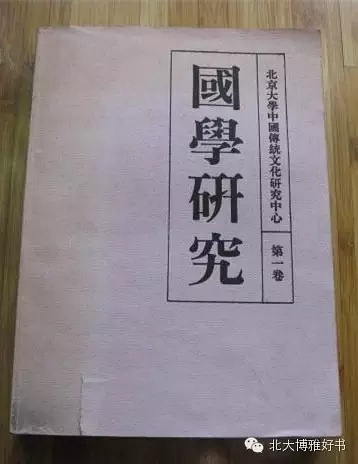 北京大學中國傳統文化研究中心
第一卷
國學研究
北大博雅好书